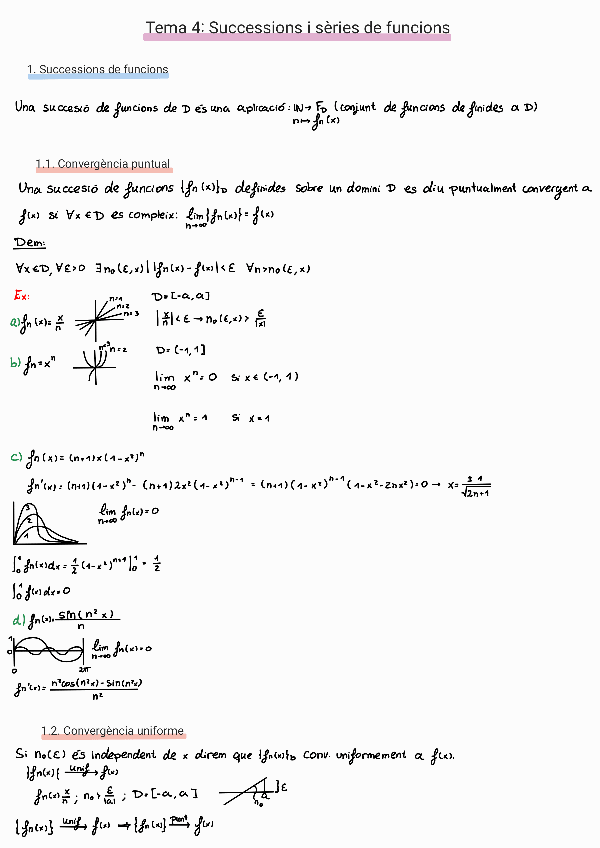 Tema 4: Successions i sèries de funcions
1. Successions de funcions
Una succesió de funcions de D és una aplicació: ℕ → F_D (conjunt de funcions definides a D)
n ↦ fn(x)
1.1. Convergència puntual
Una succesió de funcions {fn(x)}_D definides sobre un domini D es diu puntualment convergent a
f(x) si ∀x ∈ D es compleix: lim n→∞ {fn(x)} = f(x)
Dem:
∀x ∈ D, ∀ε>0 ∃n₀(ε,x) | |fn(x) - f(x)| < ε ∀n>n₀(ε,x)
Ex:
a) fn(x) = x/n n=1 n=2 n=3 D=[-a,a]
|x/n| < ε → n₀(ε,x) > ε/|x|
b) fn = xⁿ n=3 n=2 D=(-1,1]
lim n→∞ xⁿ = 0 si x ∈ (-1,1)
lim n→∞ xⁿ = 1 si x=1
c) fn(x) = (n+1)x(1-x²)ⁿ
fn'(x) = (n+1)(1-x²)ⁿ - (n+1)2x²(1-x²)ⁿ⁻¹ = (n+1)(1-x²)ⁿ⁻¹(1-x²-2nx²) = 0 → x = 1/√2n+1
3 2 1 lim n→∞ fn(x) = 0
∫₀¹ fn(x)dx = 1/2 (1-x²)ⁿ⁺¹ |₀¹ = 1/2
∫₀¹ f(x)dx = 0
d) fn(x) = sin(n²x)/n
1 0 0 2π lim n→∞ fn(x) = 0
fn'(x) = n³cos(n²x) - sin(n²x) / n²
1.2. Convergència uniforme
Si n₀(ε) és independent de x direm que {fn(x)}_D conv. uniformement a f(x).
{fn(x)} unif→ f(x)
fn(x) x/n ; n₀ > ε/|a| ; D=[-a,a] n₀ a ]ε
{fn(x)} unif→ f(x) → {fn(x)} punt→ f(x)